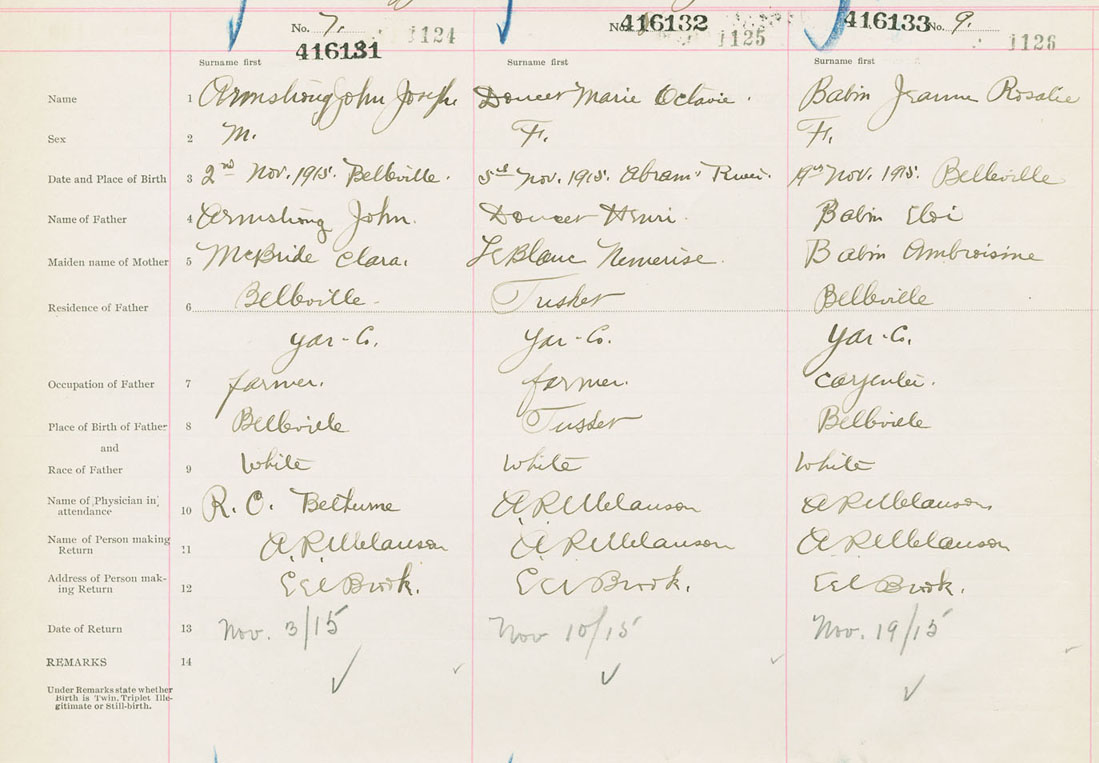 No. 7. 1124 416132 1125 416133 No. 9. 1126
416131
Surname first Surname first Surname first
Name 1 Armstrong John Joseph Doucet Marie Octavie. Babin Jeanne Rosalie
Sex 2 M. F. F.
Date and Place of Birth 3 2nd Nov. 1915. Belleville. 5th Nov. 1915. Abram's River. 9th Nov. 1915. Belleville
Name of Father 4 Armstrong John. Doucet Henri. Babin Eloi
Maiden name of Mother 5 McBride Clara. LeBlanc Nemerise. Babin Ambroisine
Residence of Father 6 Belleville. Tusket Belleville
Yar-Co. Yar-Co. Yar-Co.
Occupation of Father 7 farmer. farmer. carpenter.
Place of Birth of Father 8 Belleville Tusket Belleville
and
Race of Father 9 White White White
Name of Physician in attendance 10 R. C. Bethume A. R. Melanson A R Melanson
Name of Person making Return 11 A. R. Melanson A. R. Melanson A. R. Melanson
Address of Person making Return 12 Eel Brook. Eel Brook. Eel Brook.
Date of Return 13 Nov. 3/15 Nov 10/15 Nov. 19/15
REMARKS 14
Under Remarks state whether
Birth is Twin, Triplet Ille-
gitimate or Still-birth.